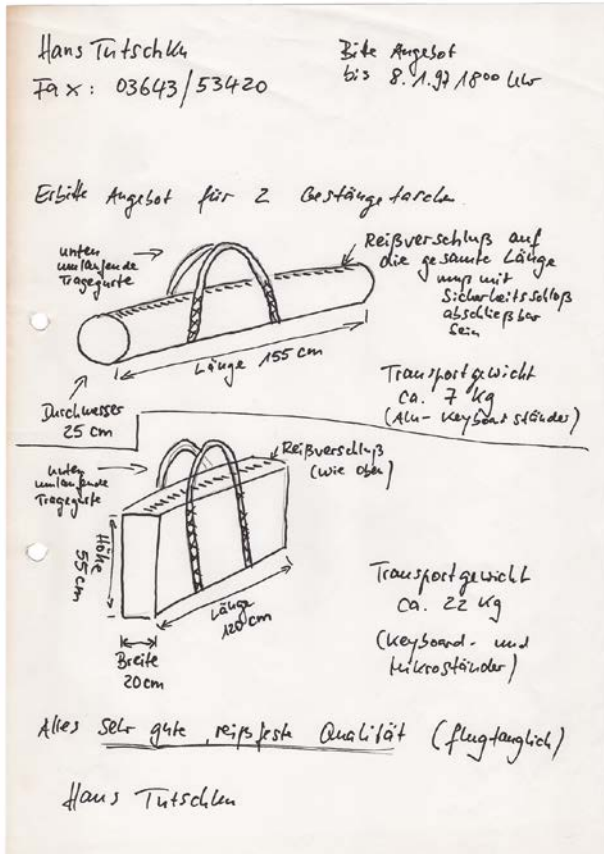 Hans Tutschku
Fax: 03643/53420
Bitte Angebot
bis 8.1.97 18⁰⁰ Uhr
Erbitte Angebot für 2 Gestängetaschen
unten
umlaufende
Tragegurte
Reißverschluß auf
die gesamte Länge
muß mit
Sicherheitsschloß
abschließbar
sein
Länge 155 cm
Durchmesser
25 cm
Transportgewicht
ca. 7 kg
(Alu-Keyboardständer)
unten
umlaufende
Tragegurte
Reißverschluß
(wie oben)
Höhe
55 cm
Länge
120 cm
Breite
20 cm
Transportgewicht
ca. 22 kg
(Keyboard- und
Mikroständer)
Alles sehr gute, reißfeste Qualität (flugtauglich)
Hans Tutschku